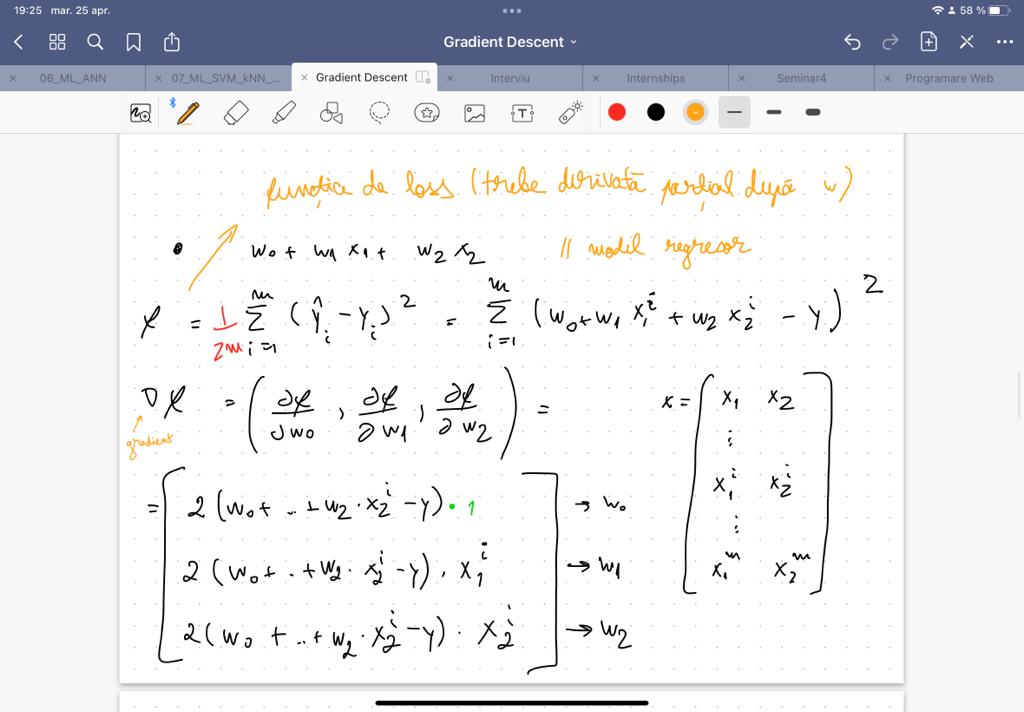 19:25 mar. 25 apr. 58 %
Gradient Descent
06_ML_ANN 07_ML_SVM_kNN_... Gradient Descent Interviu Internships Seminar4 Programare Web
funcția de loss (trebe derivată parțial după w)
• w₀ + w₁ x₁ + w₂ x₂ // model regresor
ℒ = 1/2m Σᵢ₌₁ᵐ (ŷᵢ - yᵢ)² = Σᵢ₌₁ᵐ (w₀ + w₁ x₁ⁱ + w₂ x₂ⁱ - y)²
∇ℒ = (∂ℒ/∂w₀, ∂ℒ/∂w₁, ∂ℒ/∂w₂) =
gradient
x = [x₁ x₂
⋮
x₁ⁱ x₂ⁱ
⋮
x₁ᵐ x₂ᵐ]
= [2 (w₀ + .. + w₂ · x₂ⁱ - y) · 1 → w₀
2 (w₀ + . + w₂ · x₂ⁱ - y) · x₁ⁱ → w₁
2 (w₀ + .. + w₂ · x₂ⁱ - y) · x₂ⁱ] → w₂